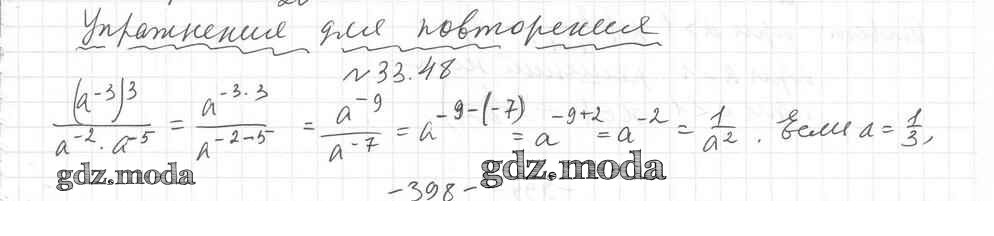 Упражнения для повторения
№33.48
(a^-3)^3 / a^-2 · a^-5 = a^-3·3 / a^-2-5 = a^-9 / a^-7 = a^-9-(-7) = a^-9+2 = a^-2 = 1/a^2. Если a = 1/3,
gdz.moda gdz.moda
-398-